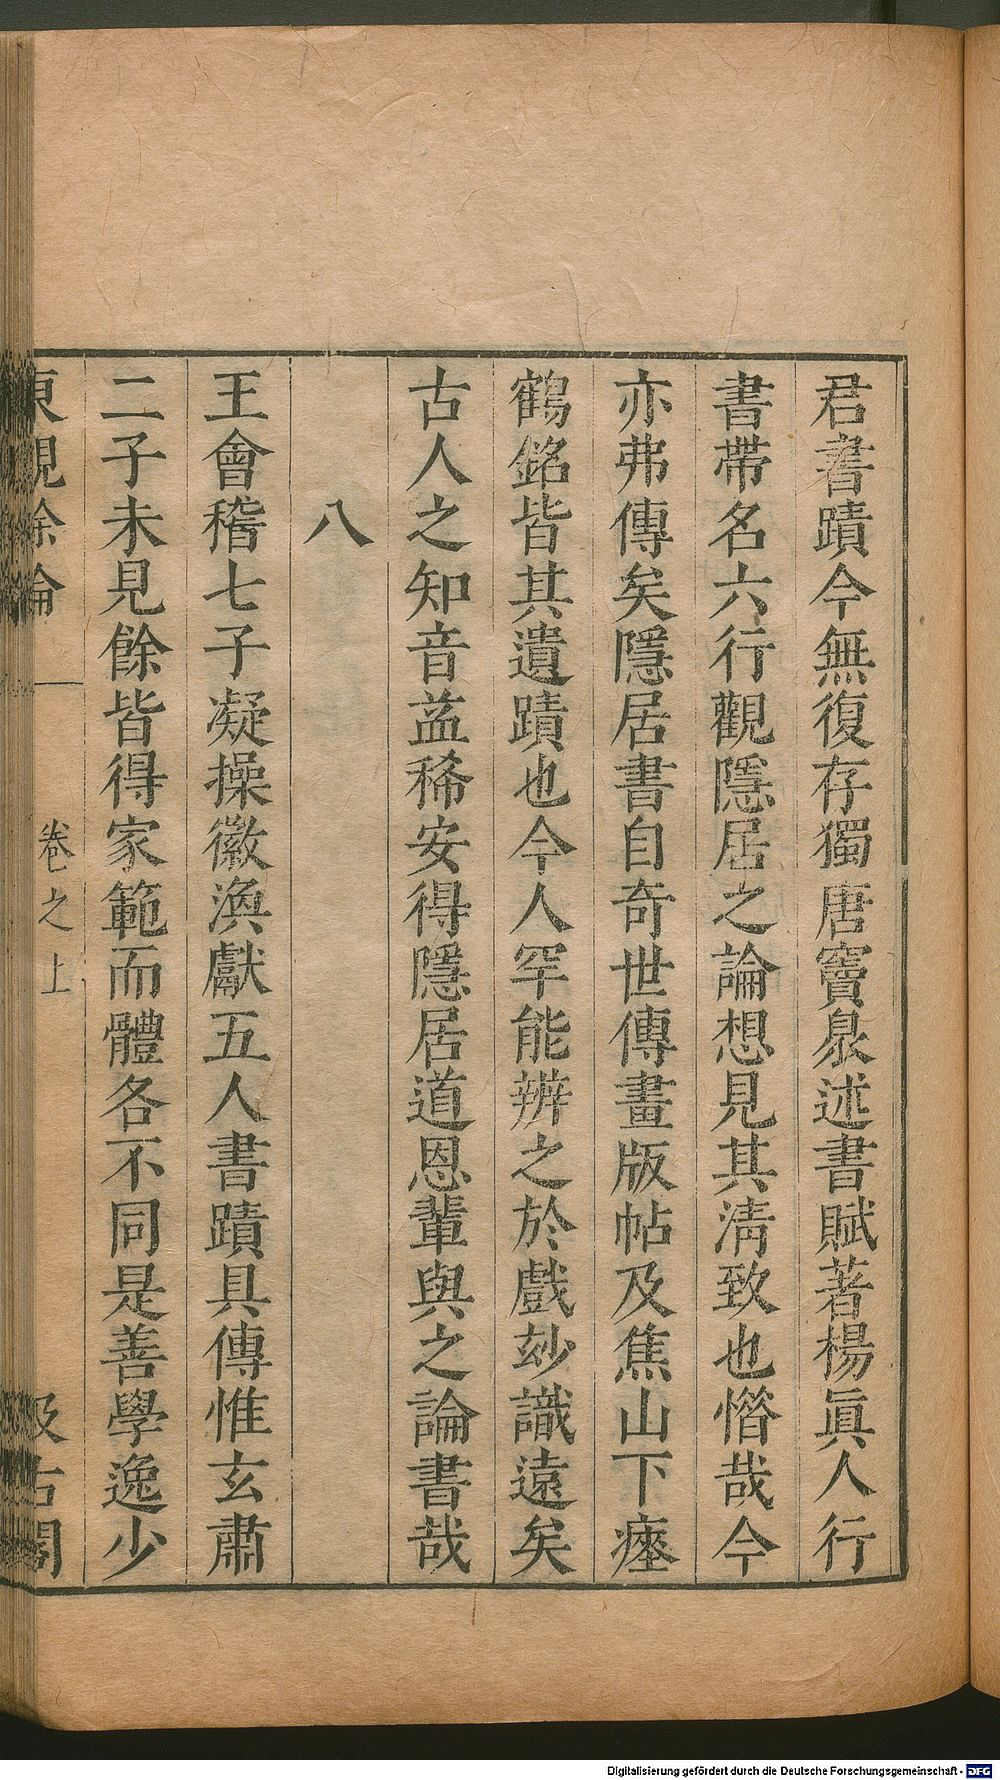 君書蹟今無復存獨唐竇泉述書賦著楊眞人行
書帶名六行觀隱居之論想見其清致也惜哉今
亦弗傳矣隱居書自奇世傳畫版帖及焦山下瘞
鶴銘皆其遺蹟也今人罕能辨之於戲玅識遠矣
古人之知音益稀安得隱居道恩輩與之論書哉
八
王會稽七子凝操徽渙獻五人書蹟具傳惟玄肅
二子未見餘皆得家範而體各不同是善學逸少
東觀餘論 卷之上 汲古閣
Digitalisierung gefördert durch die Deutsche Forschungsgemeinschaft - DFG